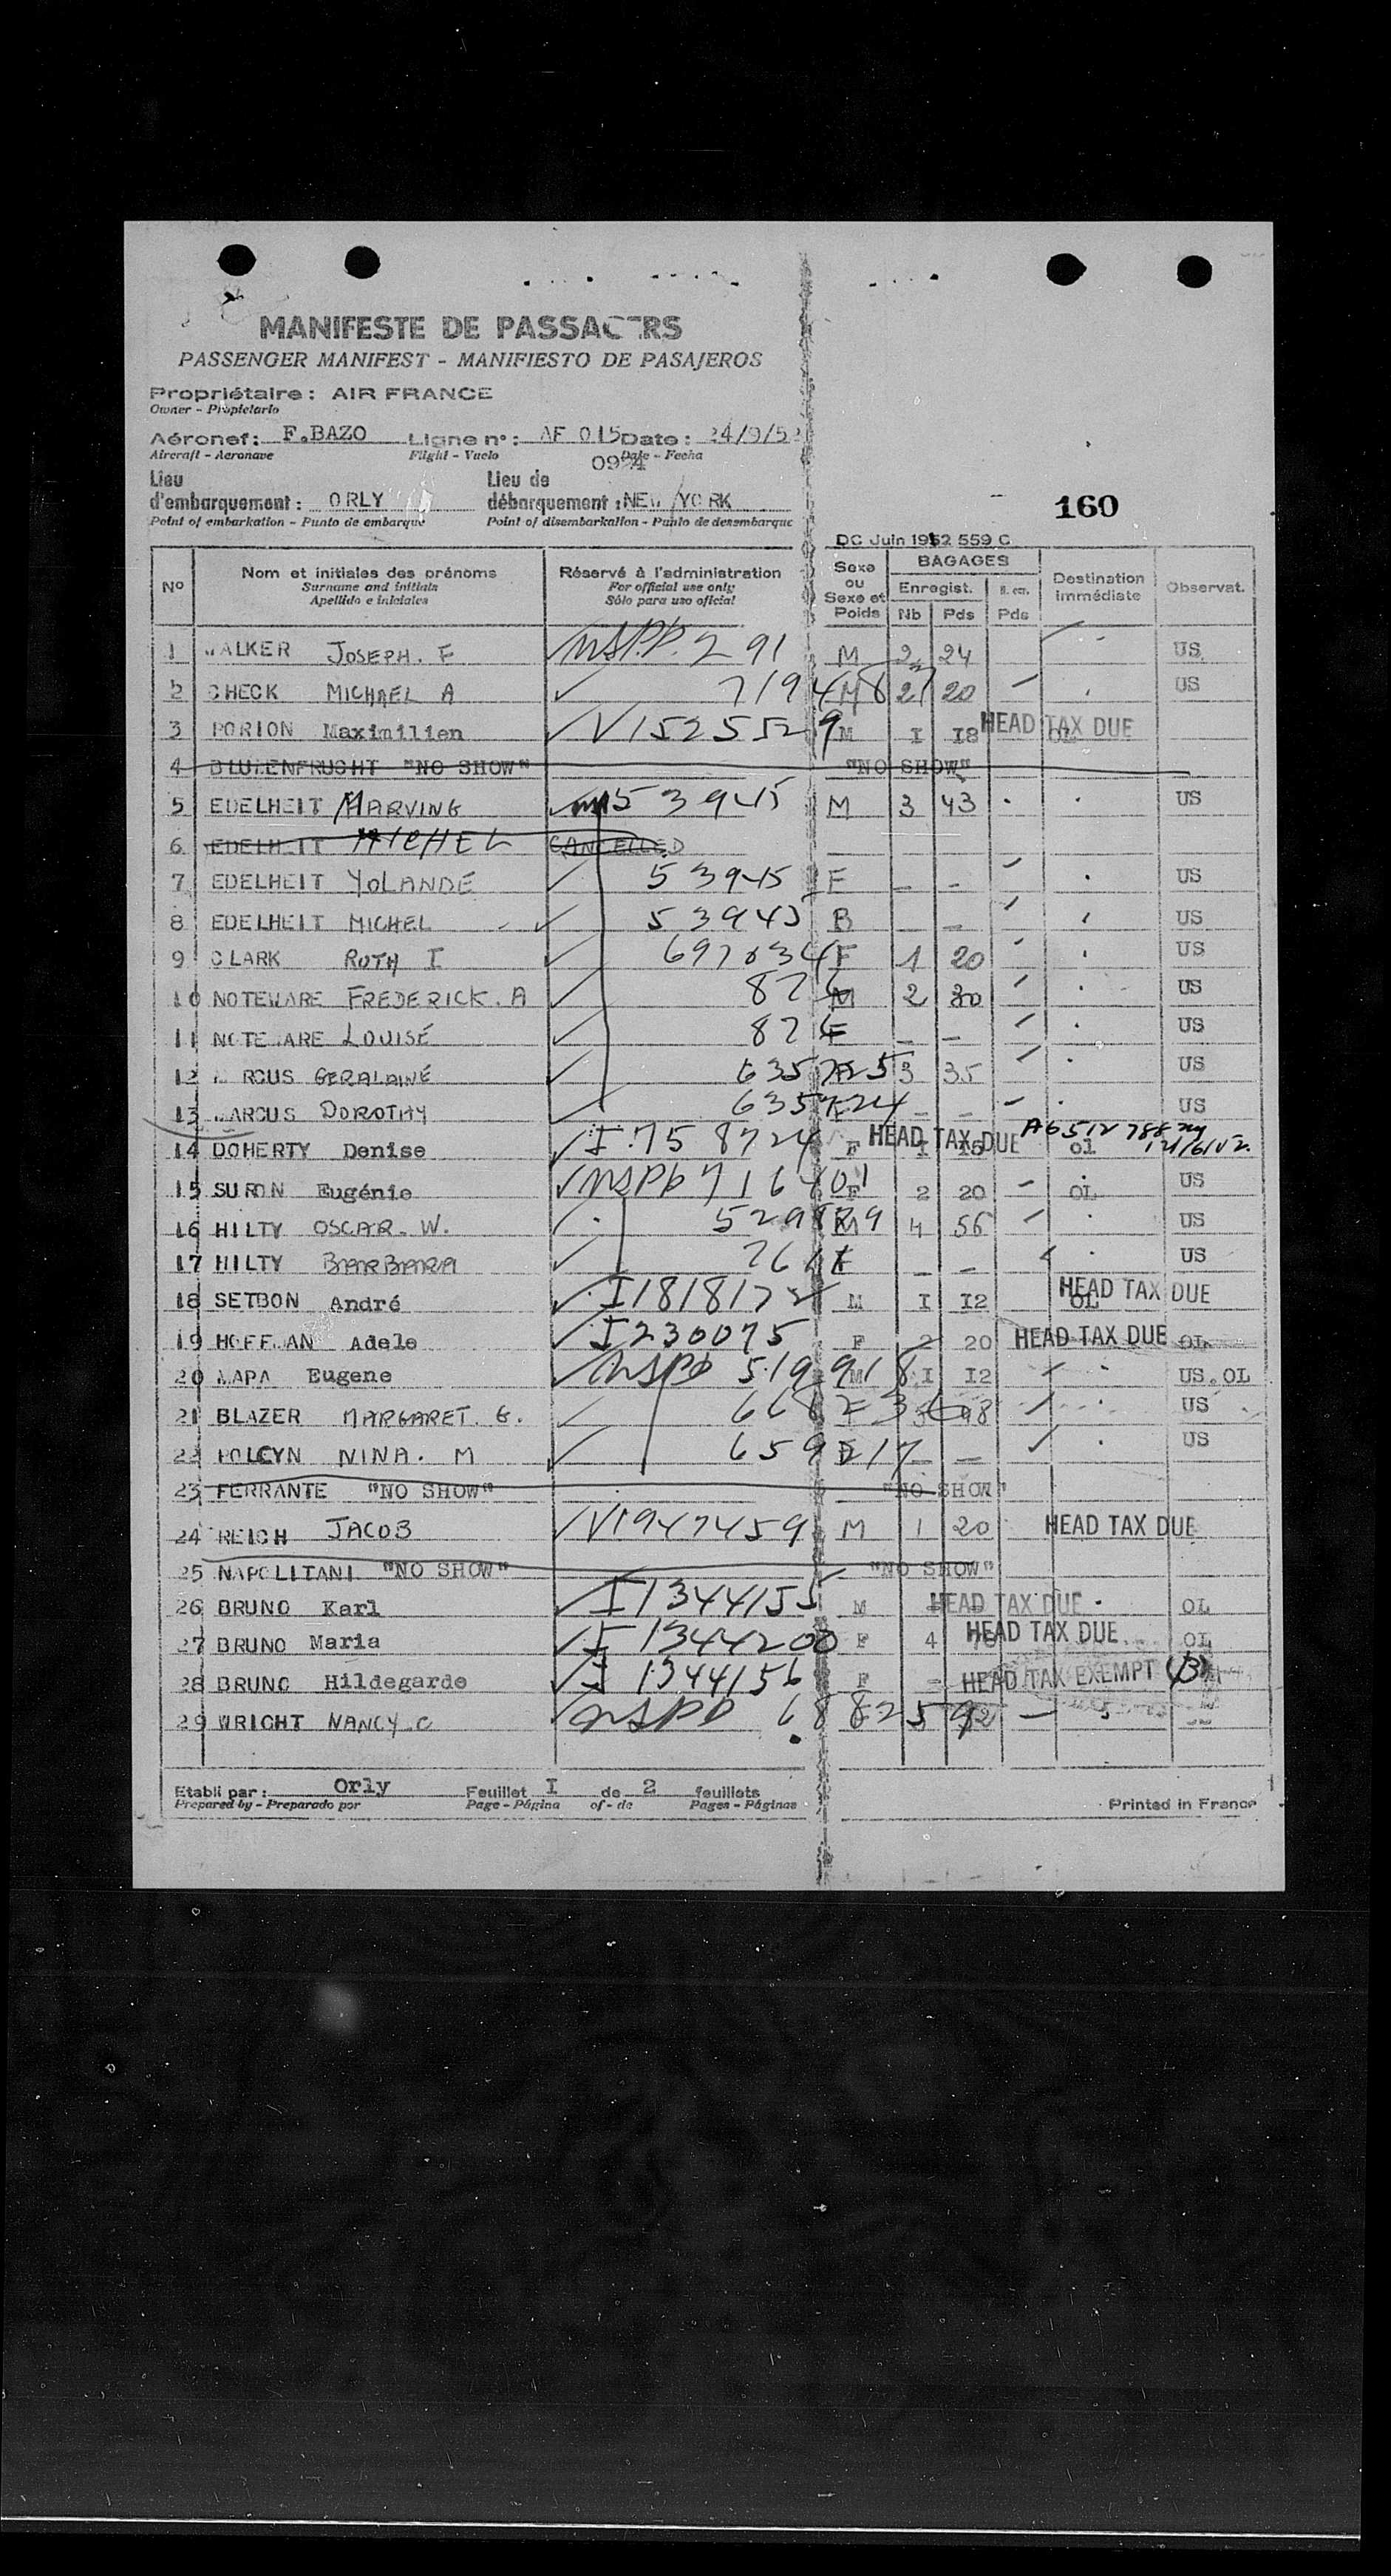 MANIFESTE DE PASSAGERS
PASSENGER MANIFEST - MANIFIESTO DE PASAJEROS
Propriétaire : AIR FRANCE
Owner - Propietario
Aéronef : F.BAZO Ligne n° : AF 015 Date : 24/9/52
Aircraft - Aeronave Flight - Vuelo Date - Fecha
0924
Lieu d'embarquement : ORLY Lieu de débarquement : NEW YORK
Point of embarkation - Punto de embarque Point of disembarkation - Punto de desembarque
160
DC Juin 1952 559 C
N° Nom et initiales des prénoms Réservé à l'administration Sexe ou Sexe et Poids BAGAGES Enregist. Nb Pds Pds Destination immédiate Observat.
Surname and initials For official use only
Apellido e iniciales Sólo para uso oficial
1 WALKER JOSEPH. F 291 M 2 24 US
2 CHECK MICHAEL A M 2 20 US
3 PORION Maximilien V1525529 M I I8 HEAD TAX DUE OL
4 BLUMENFRUCHT "NO SHOW" "NO SHOW"
5 EDELHEIT MARVING 53945 M 3 43 US
6 EDELHEIT MICHEL CANCELLED
7 EDELHEIT YOLANDE 53945 F - - US
8 EDELHEIT MICHEL 53945 B - - US
9 CLARK RUTH I 697034 F 1 20 US
10 NOTEWARE FREDERICK. A 826 M 2 30 US
11 NOTEWARE LOUISE 826 F - - US
12 MARCUS GERALDINE 635725 F 3 35 US
13 MARCUS DOROTHY 635724 F - - US
14 DOHERTY Denise I 758724 F HEAD TAX DUE ol
15 SURON Eugénie 716401 F 2 20 OL US
16 HILTY OSCAR. W. M 4 56 US
17 HILTY BARBARA F - - US
18 SETBON André I 1818172 M I I2 HEAD TAX DUE OL
19 HOFFMAN Adele I 230075 F 2 20 HEAD TAX DUE OL
20 MAPA Eugene 519918 M I I2 US.OL
21 BLAZER MARGARET. G. US
22 POLCYN NINA. M 659217 F - - US
23 FERRANTE "NO SHOW" "NO SHOW"
24 REICH JACOB V1947459 M 1 20 HEAD TAX DUE
25 NAPOLITANI "NO SHOW" "NO SHOW"
26 BRUNO Karl I 1344155 M HEAD TAX DUE OL
27 BRUNO Maria I 1344200 F 4 HEAD TAX DUE OL
28 BRUNO Hildegarde I 1344156 F - HEAD TAX EXEMPT (3)
29 WRIGHT NANCY. C 688259
Etabli par : Orly Feuillet I de 2 feuillets
Prepared by - Preparado por Page - Página of - de Pages - Páginas
Printed in France